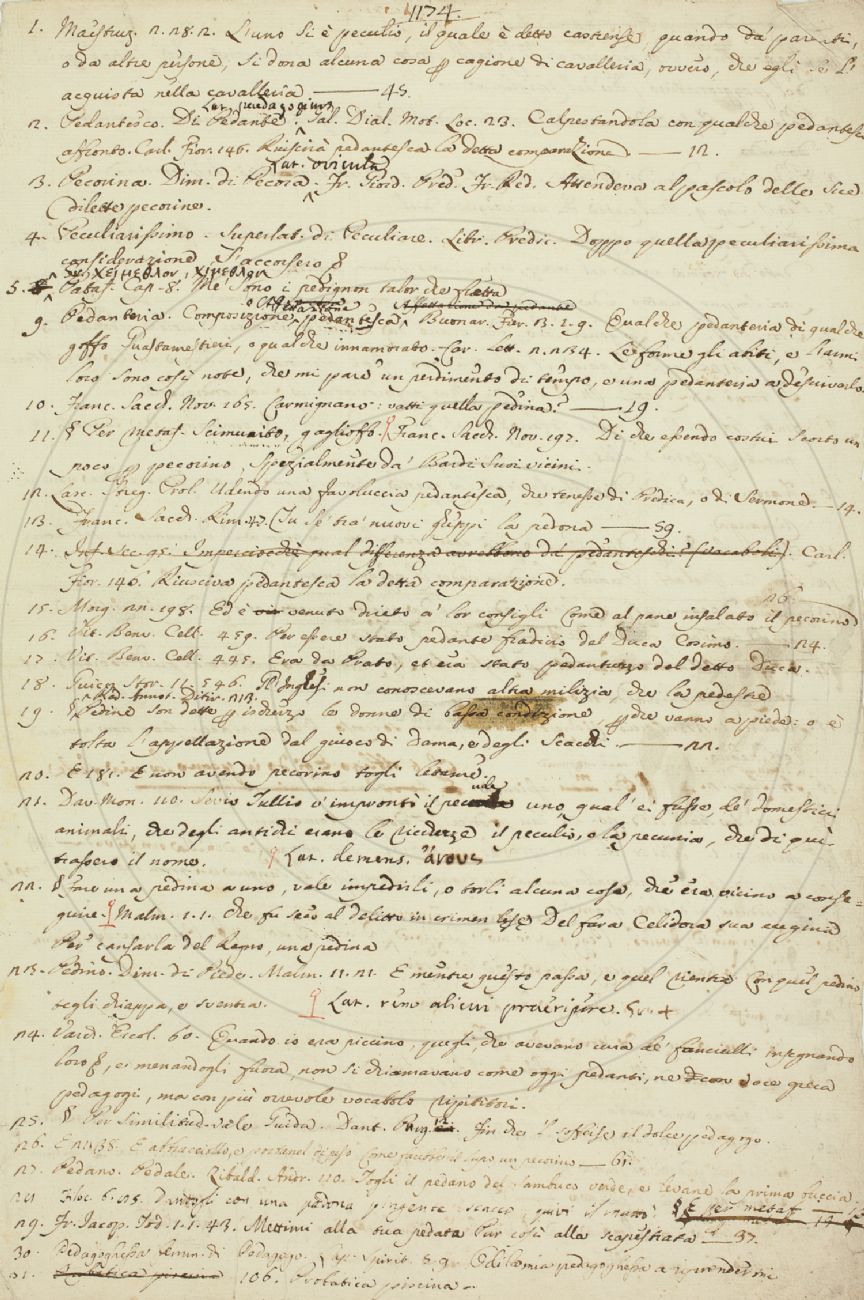 1174.
1. Maestruz. 2. 28. 2. L'uno si è peculio, il quale è detto castrense, quando da' parenti,
o da altre persone, si dona alcuna cosa per cagione di cavalleria, ovvero, che egli
acquista nella cavalleria 45.
Lat. paedagogium
2. Pedantesco. Di Pedante. Sal. Dial. Mot. Loc. 23. Calpestandola con qualche pedantesco
affronto. Carl. Fior. 146. Riusciva pedantesca la detta comparazione. 12.
Lat. ovicula
3. Pecorina. Dim. di Pecora. Fr. Giord. Pred. Fr. Red. Attendeva al pascolo delle sue
dilette pecorine.
4. Peculiarissimo. Superlat. di Peculiare. Libr. Predic. Doppo quella peculiarissima
considerazione, s'accorsero
Gr. χείμεθλον, χίμεθλον
5. Pataf. Cap. 8. Me' sono i pedignon talor che
9. Pedanteria. Composizione pedantesca, Buonar. Fier. 3. 2. 9. Qualche pedanteria di qualche
goffo Guastamestieri, o qualche innamorato. Car. Lett. 2. 234. Le forme gli abiti, e
loro sono così note, che mi pare un perdimento di tempo, e una pedanteria a descriverlo
10. Franc. Sacch. Nov. 165. Carmignano: vatti quella pedina? 19.
11. § Per metaf. Scimunito, gaglioffo. Franc. Sacch. Nov. 197. Di che essendo costui scorto un
poco per pecorino, spezialmente da' Bardi suoi vicini.
12. Lasc. Streg. Prol. Udendo una favoluccia pedantesca, che tenesse di Predica, o di Sermone. 14.
13. Franc. Sacch. Rim. 47. Tu se' tra' nuovi giuppi la pedona 59.
14. Inf. Sec. 95. Imperciocchè qual differenza avrebbono da' pedanteschi (vocaboli). Carl.
Fior. 146. Riusciva pedantesca la detta comparazione.
26.
15. Morg. 22. 198. Ed è venuto drieto a' lor consigli Come al pane insalato il pecorino
16. Vit. Benv. Cell. 459. Per essere stato pedante fradicio del Duca Cosimo. 24.
17. Vit. Benv. Cell. 445. Era da Prato, et era stato pedantuzzo del detto Duca.
18. Guicc. Stor. 11. 546. Gl'Inglesi non conoscevano altra milizia, che la pedestre
Red. Annot. Ditir. 213.
19. § Pedine son dette per ischerzo le donne di bassa condizione, perchè vanno a piede: o è
tolta l'appellazione dal giuoco di Dama, e degli Scacchi 22.
20. E 181. E non avendo pecorino togli letame.
21. Dav. Mon. 110. Servio Tullio v'improntò il uno, qual' ei fusse, de' domestici
animali, che degli antichi erano le ricchezze il peculio, o la pecunia, che di qui
trassero il nome. Lat. demens.
22. § Fare una pedina a uno, vale impedirli, o torli alcuna cosa, che era vicino a conse=
guire. Malm. 1. 1. Che fu reo al delitto in crimen lese Del fara Celidora sua cugina
Per cansarla del Regno, una pedina
23. Pedino. Dim. di Piede. Malm. 11. 21. E mentre questo passa, e quel rientra Con quel pedino
tegli chiappa, e sventra. Lat. rem alicui praeripere. Gr. +
24. Varch. Ercol. 60. Quando io era piccino, quegli, che avevano cura de' fanciulli insegnando
loro, e menandogli fuora, non si chiamavano come oggi pedanti, ne con voce greca
pedagogi, ma con più orrevole vocabolo ripititori.
25. § Per similitud. vale Guida. Dant. Purg. 12. Fin che 'l soffise il dolce pedagogo.
26. come facestu il capo un pecorino 61.
27. Pedano. Pedale. Ribald. Andr. 110. Togli il pedano del sambuco verde, e levane la prima buccia.
28. con una pedona § E per metaf
29. Fr. Jacop. Tod. 1. 1. 43. Mettimi alla tua pedata Pur così alla scapestrata 37.
30. Pedagoghessa femm. di Pedagogo. pedagoghessa a
31. Probatica piscina 106. Probatica piscina